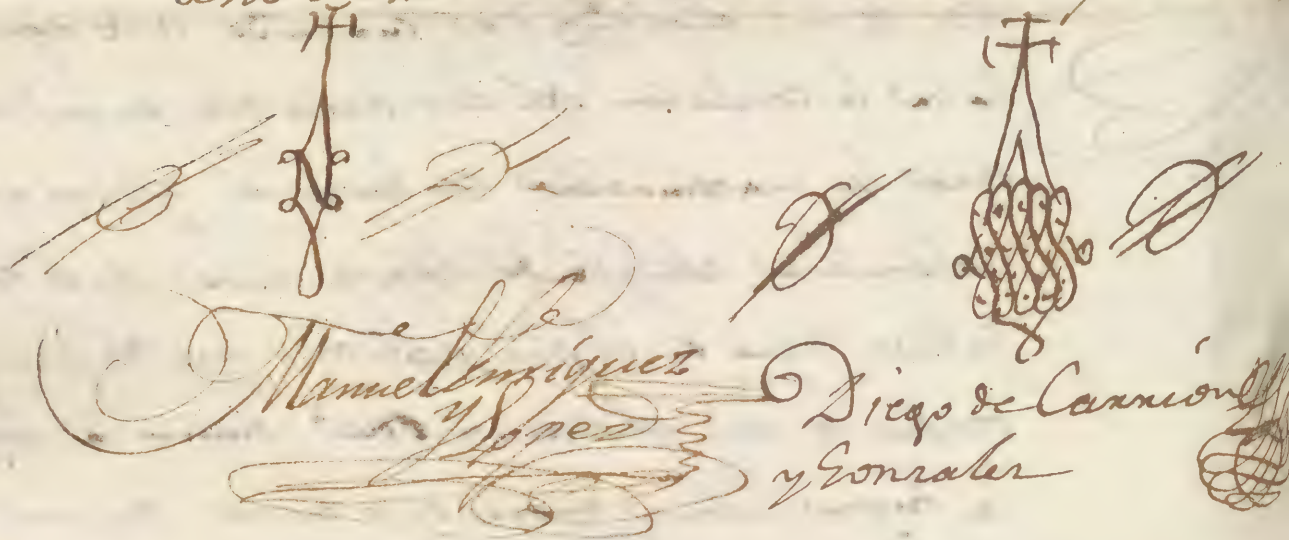 Manuel Enriquez
y Lopez
Diego de Carrión
y Gonzalez